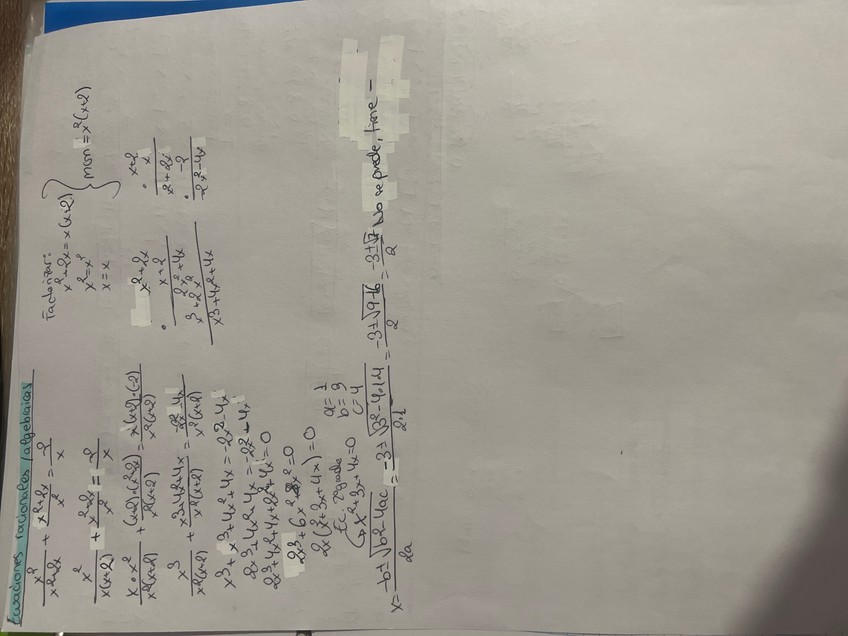 Ecuaciones racionales (algebraicas)
x²/(x²+2x) + (x²+2x)/x² = -2/x
x²/(x(x+2)) + (x²+2x)/x² = -2/x
(x·x²)/(x²(x+2)) + ((x+2)·(x²+2x))/(x²(x+2)) = (x(x+2)·(-2))/(x²(x+2))
x³/(x²(x+2)) + (x³+4x²+4x)/(x²(x+2)) = (-2x²-4x)/(x²(x+2))
x³ + x³ + 4x² + 4x = -2x² - 4x
2x³ + 4x² + 4x = -2x² - 4x
2x³ + 4x² + 4x + 2x² + 4x = 0
2x³ + 6x² + 8x² = 0
2x(x² + 3x + 4x) = 0
Ec. 2º grado
x² + 3x + 4x = 0
a = 1
b = 3
c = 4
x = (-b ± √(b²-4ac))/2a = (-3 ± √(3²-4·1·4))/(2·1) = (-3 ± √(9-16))/2 = (-3 ± √-7)/2 No se puede, tiene -
Factorizar:
x²+2x = x(x+2)
x² = x²
x = x
mcm = x²(x+2)
· x²+2x
x+2
2x²+4x
x³+2x²
x³+4x²+4x
· x+2
x
x²+2x
· -2
-2x²-4x